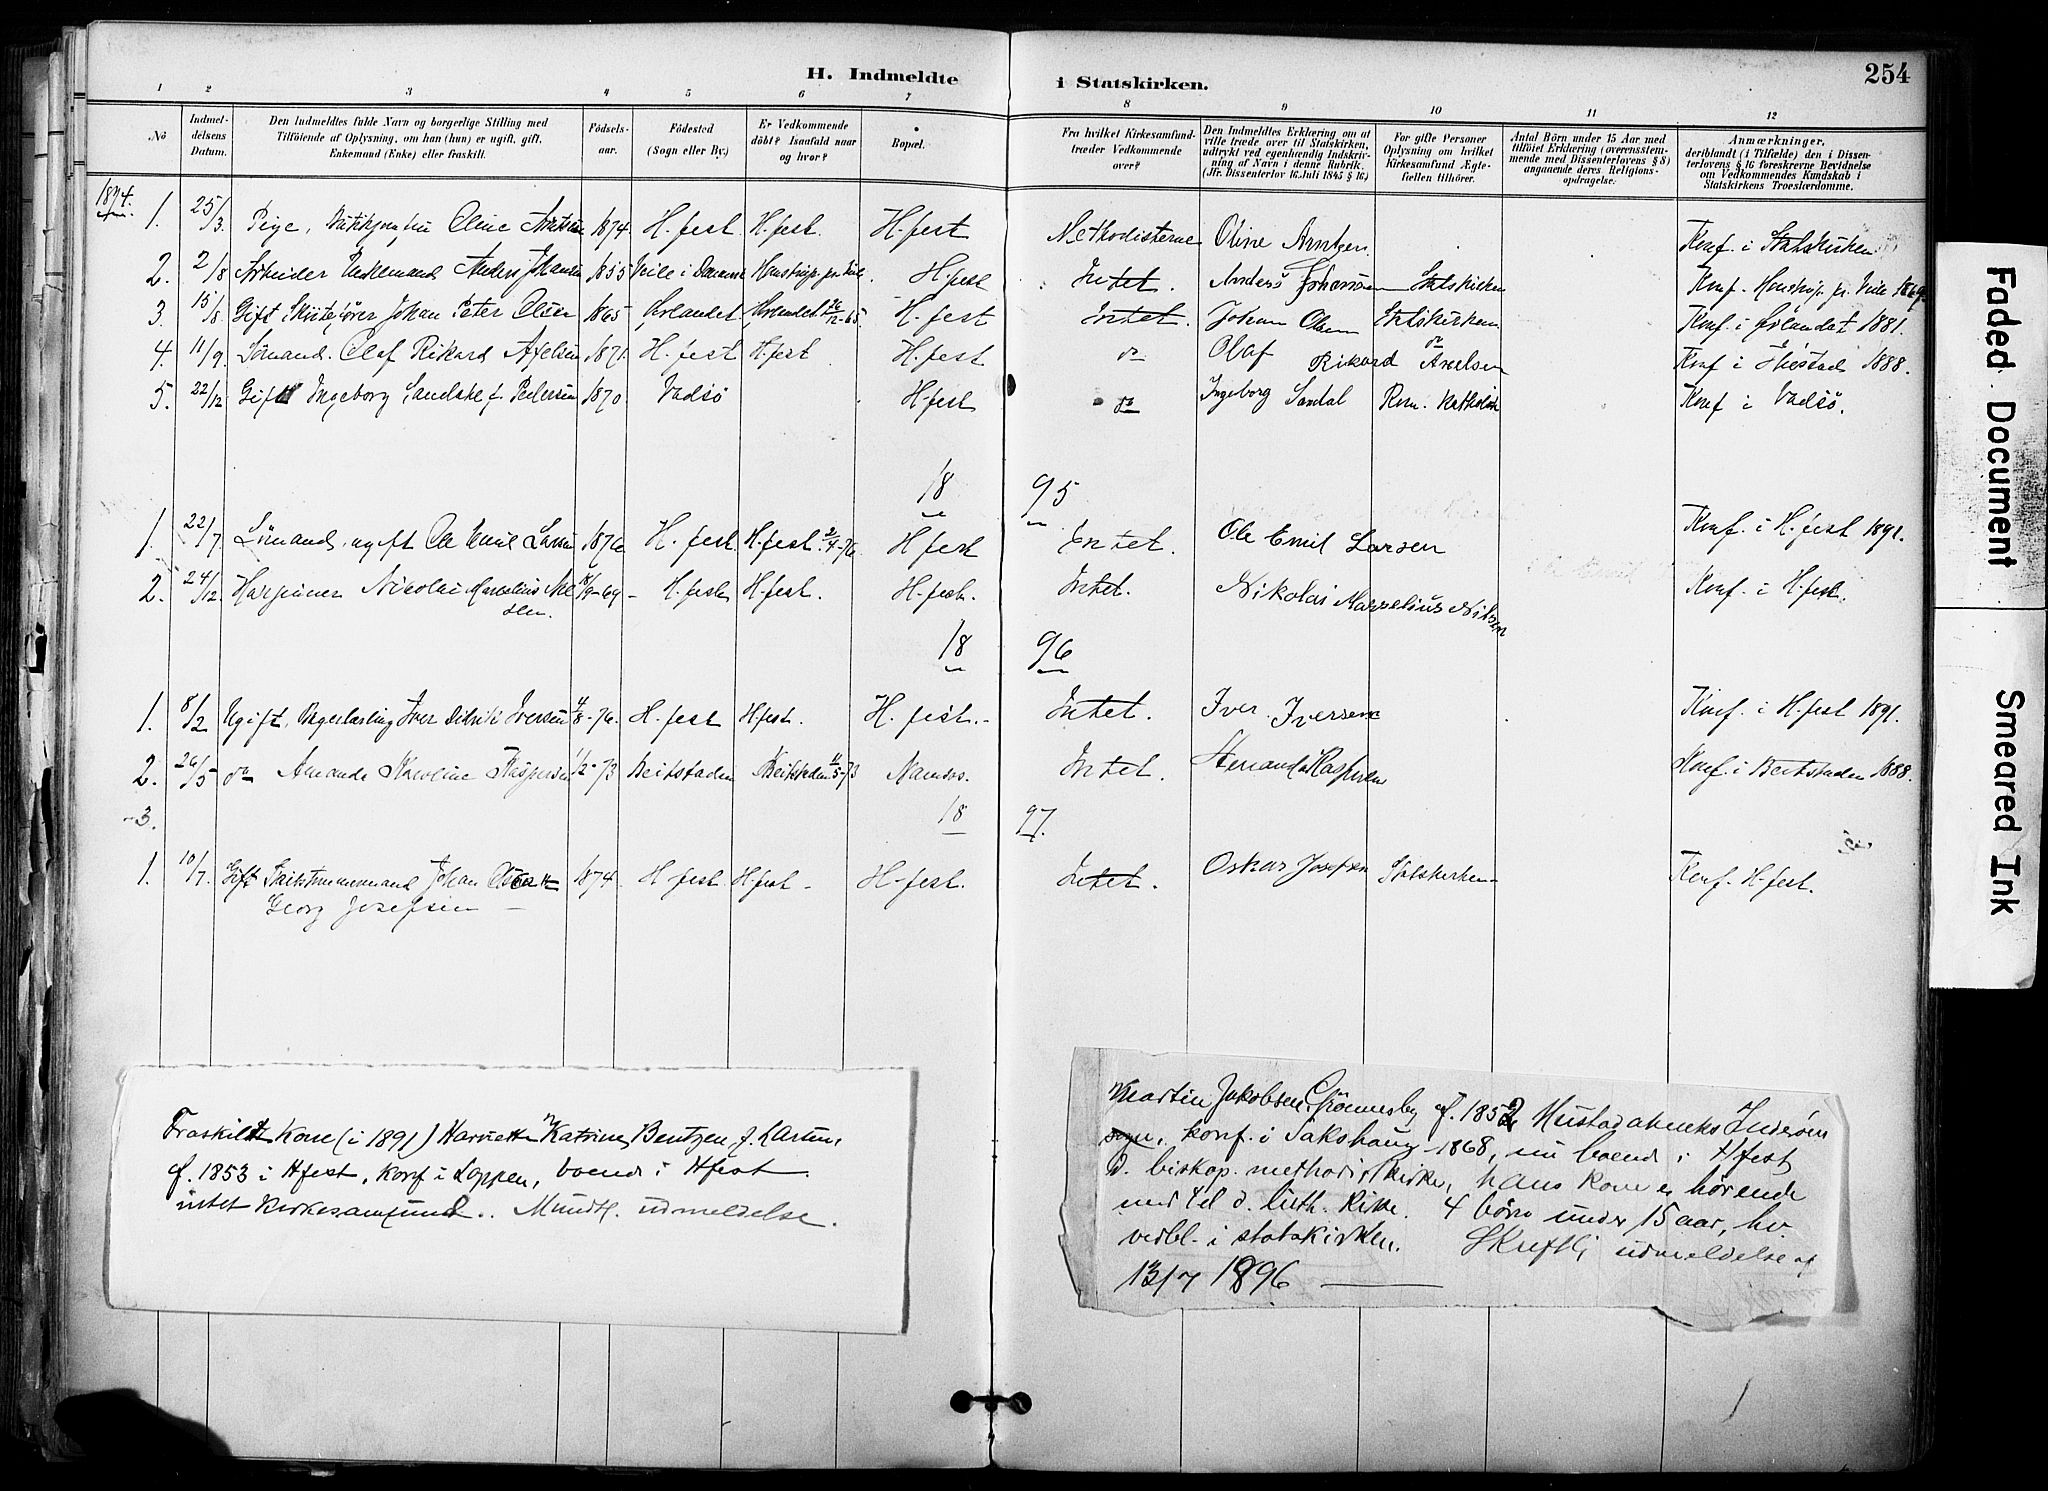 H. Indmeldte i Statskirken. 254
1 2 3 4 5 6 7 8 9 10 11 12
No
Indmeldelsens Datum.
Den Indmeldtes fulde Navn og borgerlige Stilling med Tilföiende af Oplysning, om han (hun) er ugift, gift, Enkemand (Enke) eller fraskilt.
Födselsaar.
Födested (Sogn eller By.)
Er Vedkommende döbt? Isaafald naar og hvor?
Bopæl.
Fra hvilket Kirkesamfund træder Vedkommende over?
Den Indmeldtes Erklæring om at ville træde over til Statskirken, udtrykt ved egenhændig Indskrivning af Navn i denne Rubrik. (Jfr. Dissenterlov 16. Juli 1845 § 16.)
For gifte Personer Oplysning om hvilket Kirkesamfund Ægtefællen tilhörer.
Antal Börn under 15 Aar med tilföiet Erklæring (overensstemmende med Dissenterlovens § 8) angaaende deres Religionsopdragelse.
Anmærkninger, deriblandt (i Tilfælde) den i Dissenterlovens § 16 foreskrevne Bevidnelse om Vedkommendes Kundskab i Statskirkens Troeslærdomme.
1. 25/3 Pige, Oline 1874 H.fest H.fest. H.fest Methodisterne Oline Arntzen. Konf. i Statskirken
2. 2/8 Arbeider Anders Johansen 1855 Veile i H.fest Intet. Anders Johansen Statskirken Konf.
3. 15/8 Gift Johan Peter Olsen 1865 Ørlandet Ørlandet 26/12-65. H.fest Intet. Johan Olsen Statskirken Konf. i Ørlandet 1881.
4. 11/9 Sömand. Olaf Rikard Axelsen 1871. H.fest H.fest H.fest do Olaf Rikard Axelsen do Konf i 1888.
5. 22/12 Gift Ingeborg f. Pedersen 1870. Vadsö H.fest do Ingeborg Sandal Rom. Katholsk Konf i Vadsö.
18 95
1. 22/7 Sömand, ugift Ole Emil Larsen 1876 H.fest H.fest. 2/4-76. H.fest Intet. Ole Emil Larsen Konf. i H.fest 1891.
2. 24/12 Harpuner Nicolai Marselius Nilssen. 18/9-69 - H.fest H.fest. H.fest. Intet. Nikolai Marselius Nilsen Konf. i H.fest.
18 96
1. 8/2 Ugift, Bagerlærling Iver Didrik Iversen 4/8-76. H.fest H.fest. H.fest.- Intet. Iver Iversen Konf. i H.fest 1891.
2. 26/5 do Amanda Karoline Kaspersen 1/2-73 Beitstaden Beitstaden 11/5-73 Namsos. Intet. Konf. i Beitstaden 1888.
3. 18 97.
1. 10/7. Gift Johan Oscar
Georg Josefsen 1874. H.fest H.fest - H.fest. Intet. Oskar Josefsen Statskirken- Konf. H.fest.
Fraskilt Kone (i 1891) Katrine Bentzen f. Larsen,
f. 1853 i Hfest, konf i Loppen, boende i Hfest
intet kirkesamfund.. Mundtl. udmeldelse.
Martin Jakobsen Grönnesby f. 1852 Inderöen
sogn, konf. i Sakshaug 1868, nu boende i Hfest
d. biskop. methodistkirke, hans kone er hörende
til d. luth. kirke. 4 börn under 15 aar,
vedbl. i statskirken. Skriftl. udmeldelse af
13/7 1896
Faded Document
Smeared Ink